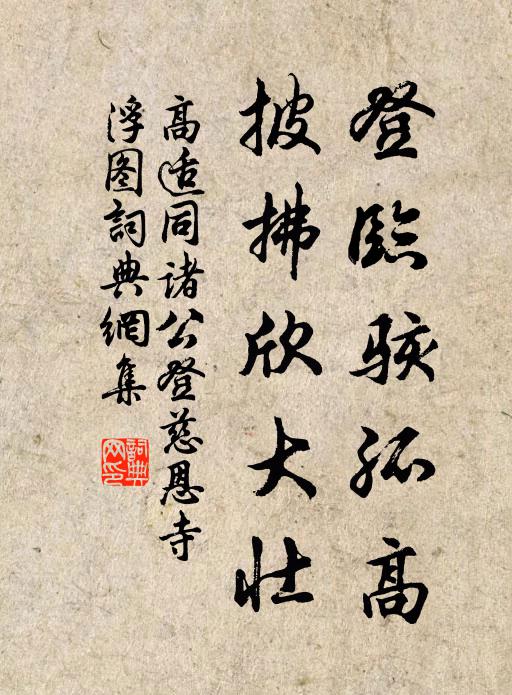 登臨駭孤高
披拂欣大壯
高适同諸公登慈恩寺
浮图詞典網集
詞典网印